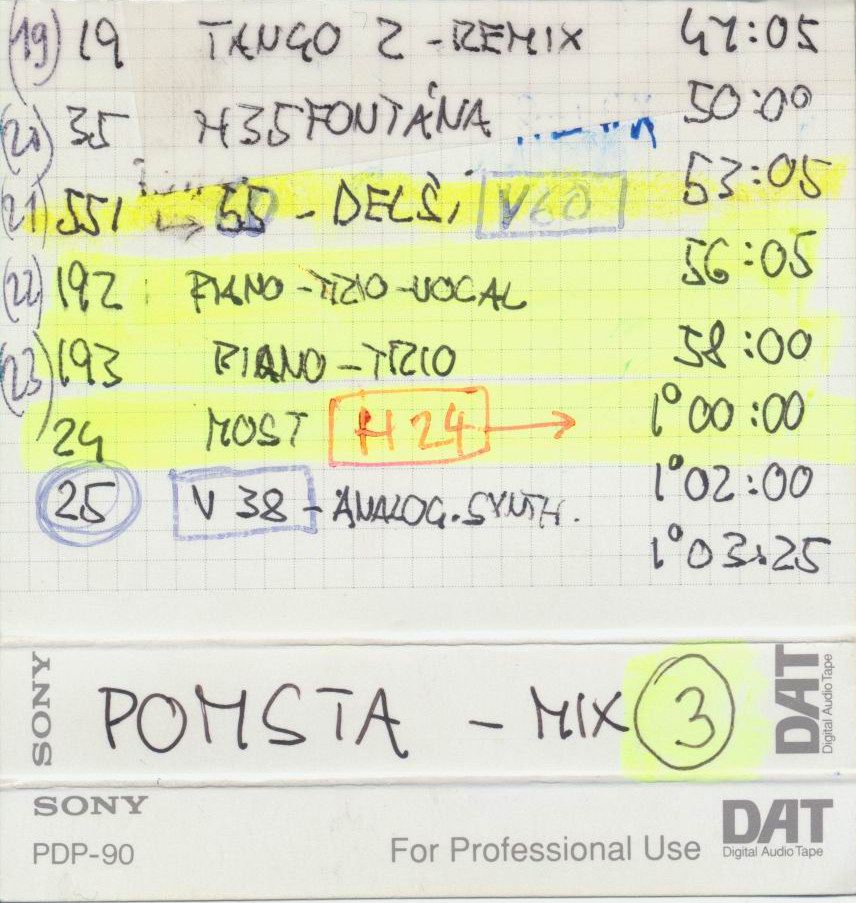 (19) 19 TANGO 2 - REMIX 47:05
(20) 35 H35 FONTÁNA 50:00
(21) 551 → 55 - DELŠÍ V60 53:05
(22) 192 PIANO - TRIO - VOCAL 56:05
(23) 193 PIANO - TRIO 58:00
24 MOST H 24 → 1°00:00
25 V 38 - ANALOG. SYNTH. 1°02:00
1°03:25
SONY POMSTA - MIX 3 DAT Digital Audio Tape
SONY DAT
PDP-90 For Professional Use Digital Audio Tape